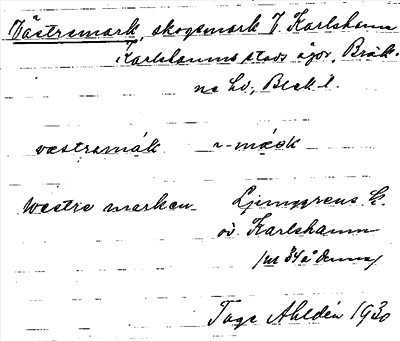 Västremark, skogsmark V. Karlshamn
Karlshamns stads ägor, Bräk-
ne hd, Blek. l.
væstræmák ~-mæ̂k
Westre marken Ljunggrens K.
öv. Karlshamn
(nr 34 å denna)
Tage Ahldén 1930